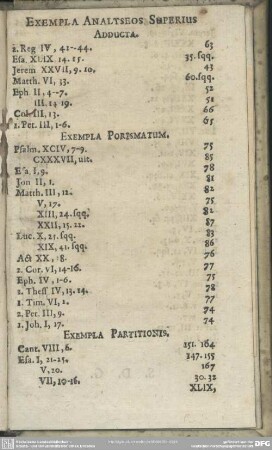 EXEMPLA ANALYSEOS SUPERIUS
ADDUCTA.
2. Reg IV, 42--44. 63
Esa. XLIX. 14. 15. 35. sqq.
Jerem XXVII, 9. 10. 43
Matth. VI, 33. 60. sqq.
Eph. II, 4--7. 52
III. 14 19. 51
Col. III, 13. 66
1. Pet. III, 1-6. 65
EXEMPLA PORISMATUM.
Psalm. XCIV, 7-9. 75
CXXXVII, ult. 85
Esa. I, 9. 78
Jon II, 1. 81
Matth. III, 12. 82
V, 17. 75
XIII, 24. sqq. 82
XXII, 15. 22. 87
Luc. X, 25. sqq. 83
XIX, 41. sqq. 86
Act XX, 28. 76
2. Cor. VI, 14-16. 77
Eph. IV, 1-6. 75
2. Thess IV, 13. 14. 78
1. Tim. VI, 2. 77
2. Pet. III, 9. 74
1. Joh. I, 17. 74
EXEMPLA PARTITIONIS.
Cant. VIII, 6. 151. 164
Esa. I, 21-25. 147. 155
V, 20. 167
VII, 10-16. 30. 32
XLIX,